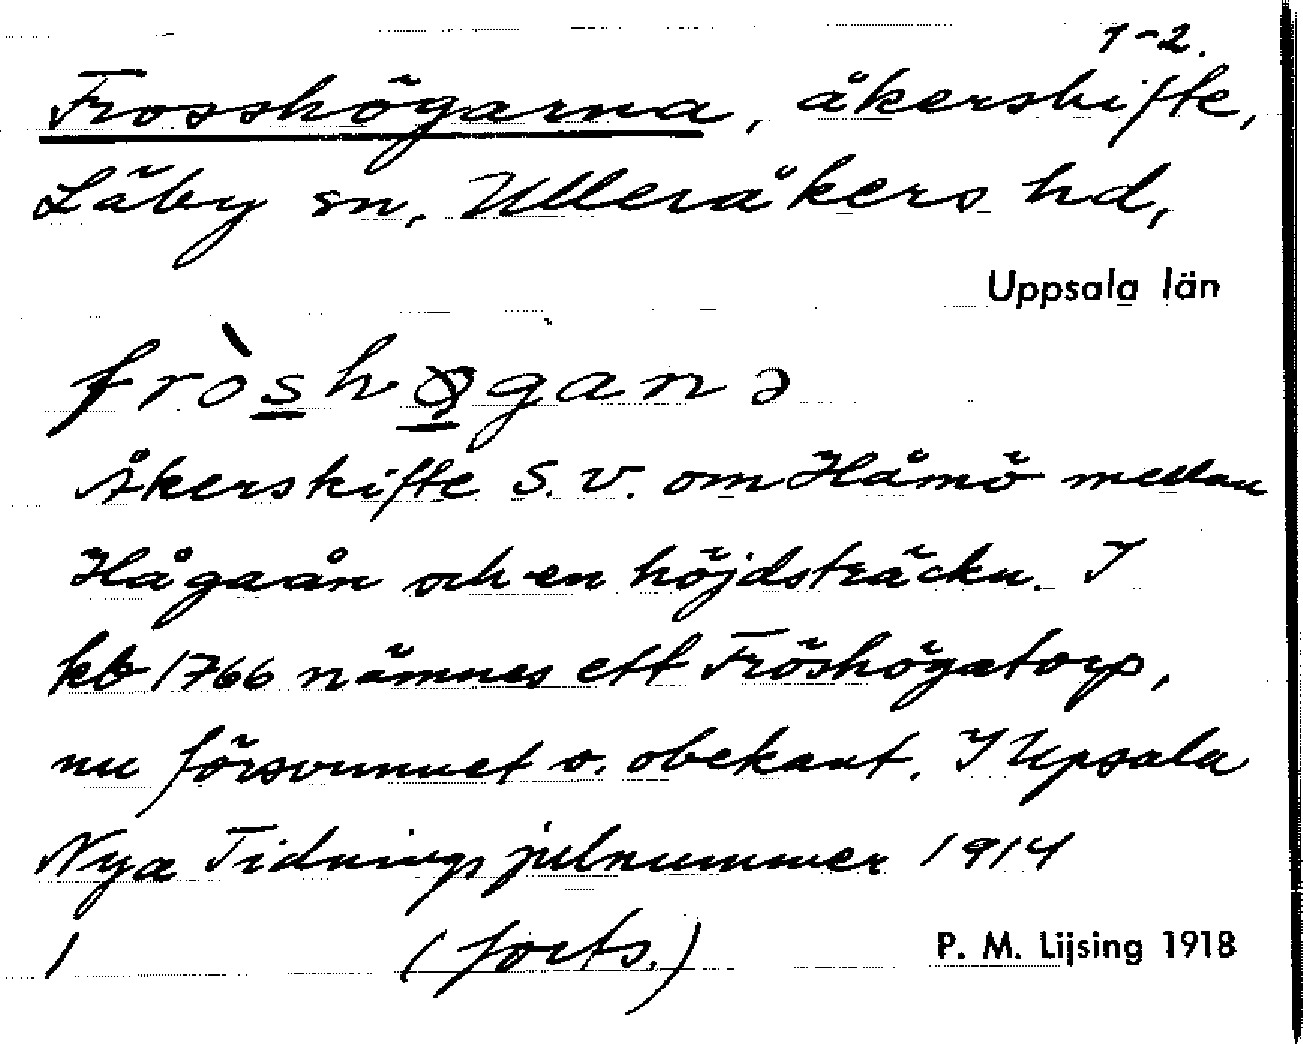 1-2.
Frosshögarna, åkerskifte,
Läby sn, Ulleråkers hd,
Uppsala län
fròshøgana
Åkerskifte S.V. om Håmö mellan
Hågaån och en höjdsträcka. I
kb 1766 nämnes ett Fröshögatorp,
nu försvunnet o. obekant. I Upsala
Nya Tidnings julnummer 1914
1 (forts.) P. M. Lijsing 1918